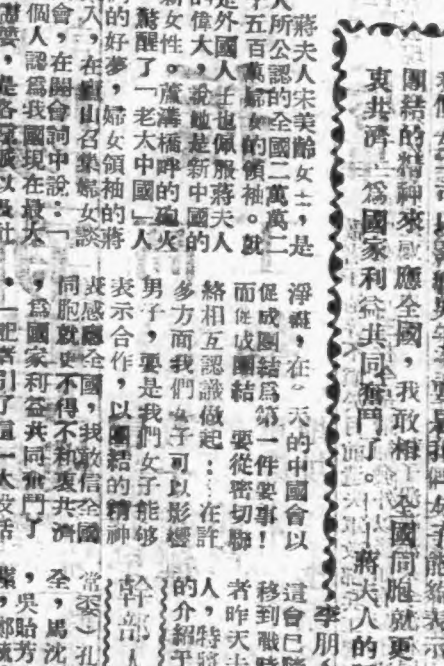 團結的精神來感應全國，我敢相　全國同胞就更
衷共濟　爲國家利益共同奮鬥了。——蔣夫人的
蔣夫人宋美齡女士，是
人所公認的全國二萬萬二
千五百萬婦女的領袖。就
是外國人士也佩服蔣夫人
的偉大，說她是新中國的
新女性。蘆溝橋畔的砲火
驚醒了「老大中國」人
的好夢，婦女領袖的蔣
人，在廬山召集婦女談
會，在開會詞中說：「
個人認爲我國現在最大
淨礙，在　天的中國會以
促成團結爲第一件要事！
而促成團結　要從密切聯
絡相互認識做起：在許
多方面我們女子可以影響
男子，要是我們女子能够
表示合作，以團結的精神
來感應全國，我敢信全國
同胞就更不得不和衷共濟
，爲國家利益共同奮鬥了
。」記者引了這一大段話
李朋
這會已
移到戰時
者昨天
人，特
的介紹
幹部人
常委）孔
全，馬沈
，吳貽芳